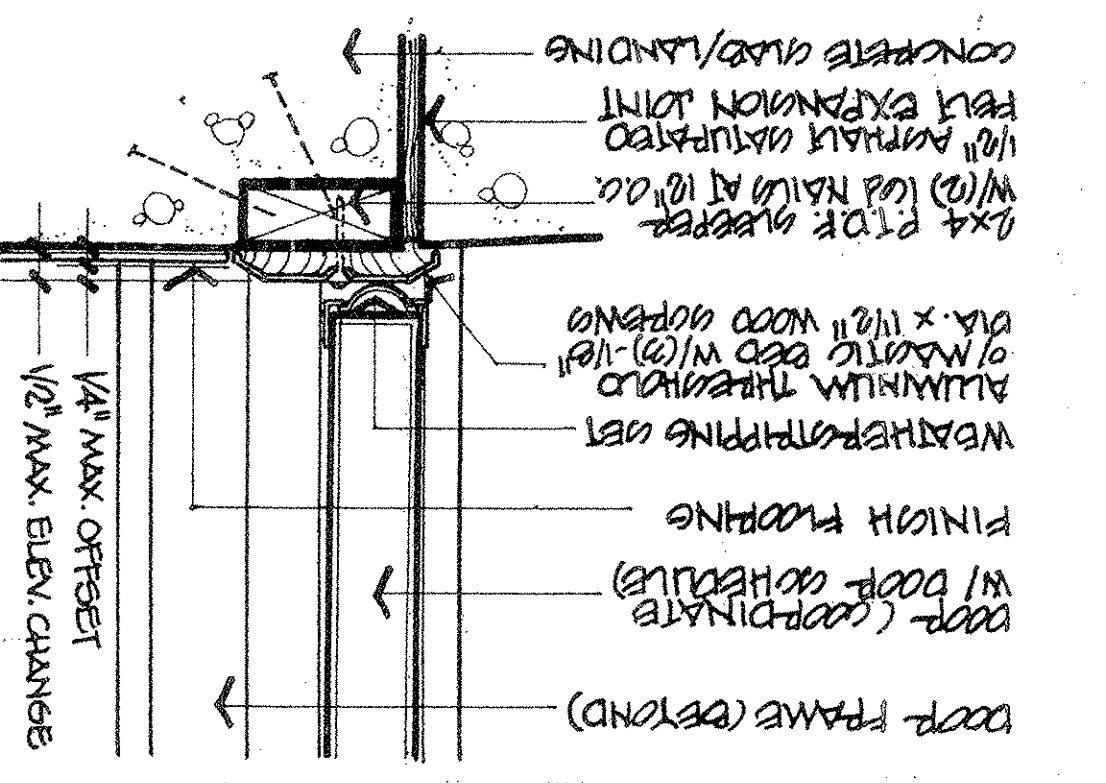 DOOR FRAME (BEYOND)
DOOR (COORDINATE
W/ DOOR SCHEDULE)
FINISH FLOORING
WEATHERSTRIPPING SET
ALUMINUM THRESHOLD
O/ MASTIC BED W/(3)-1/8"
DIA. X 1 1/2" WOOD SCREWS
2x4 P.T.D.F. SLEEPER
W/(2) 16d NAILS AT 12" O.C.
1/2" ASPHALT SATURATED
FELT EXPANSION JOINT
CONCRETE SLAB/LANDING
1/4" MAX. OFFSET
1/2" MAX. ELEV. CHANGE